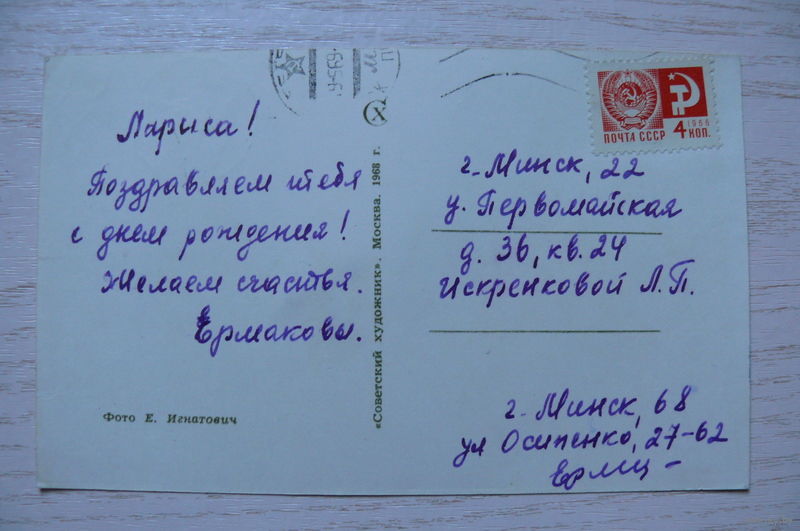 Лариса!
Поздравляем тебя
с днем рождения!
Желаем счастья.
Ермаковы.
Фото Е. Игнатович
«Советский художник». Москва. 1968 г.
ПОЧТА СССР 4 КОП.
1966
г. Минск, 22
у. Первомайская
д. 36, кв. 24
Искренковой Л.П.
г. Минск, 68
ул Осипенко, 27-62